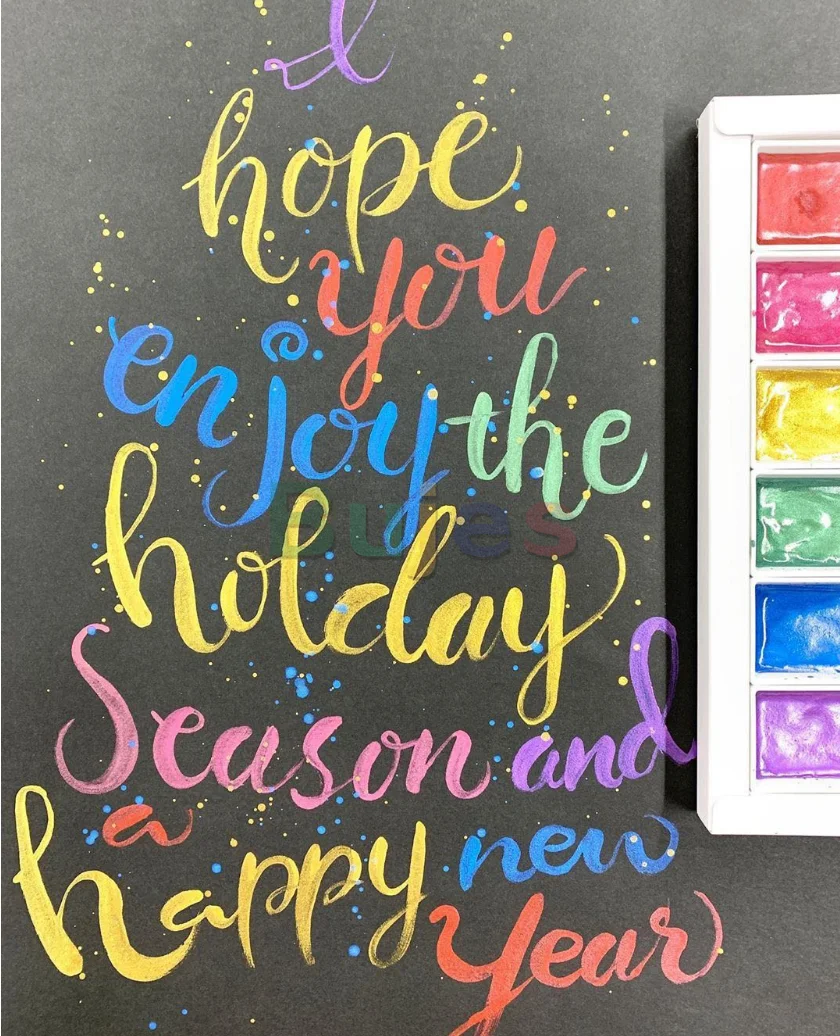 I
hope
you
enjoy the
Bujes
holday
Season and
a
happy new
year